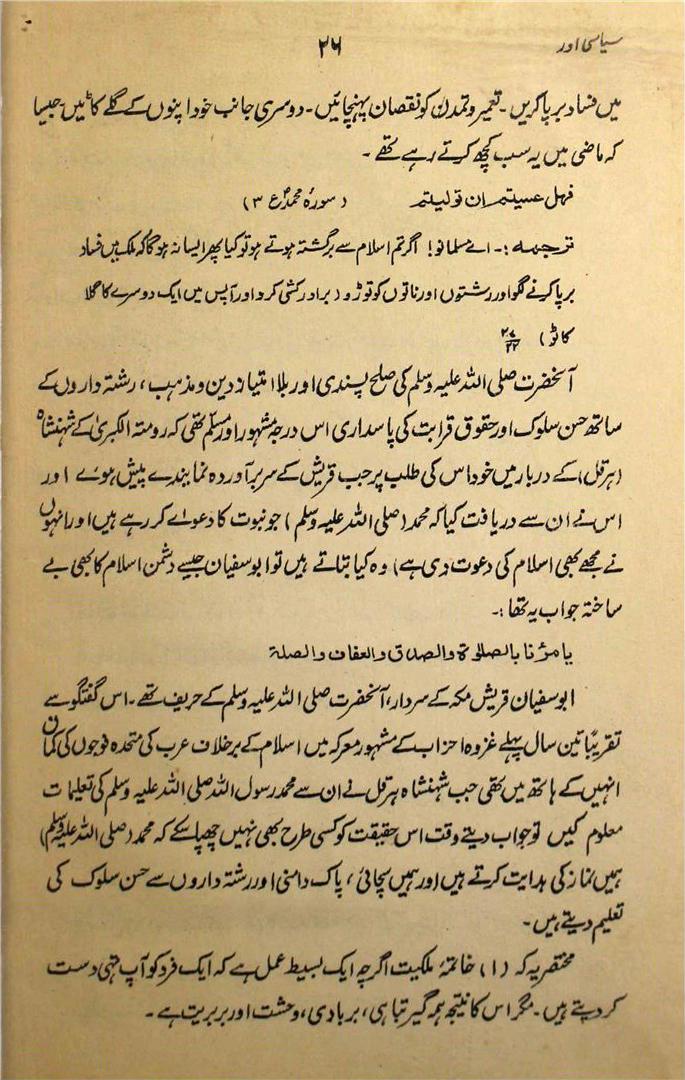 سیاسی اور
۲۶
میں فساد برپا کریں۔ تعمیر و تمدن کو نقصان پہنچائیں۔ دوسری جانب خود اپنوں کے گلے کاٹیں۔ جیسا
کہ ماضی میں یہ سب کچھ کرتے رہے تھے۔
فہل عسیتم ان تولیتم (سورۂ محمدؐ ع ۳)
ترجمہ :۔ اے مسلمانو! اگر تم اسلام سے برگشتہ ہوتے ہو تو کیا پھر ایسا نہ ہوگا کہ ملک میں فساد
برپا کرنے لگو اور رشتوں اور ناتوں کو توڑ دو (برادر کشی کرو اور آپس میں ایک دوسرے کا گلا
کاٹو) ۴۷/۲۲
آنحضرت صلی اللہ علیہ وسلم کی صلح پسندی اور بلا امتیاز دین و مذہب، رشتہ داروں کے
ساتھ حسن سلوک اور حقوق قرابت کی پاسداری اس درجہ مشہور اور مسلّم تھی کہ رومتہ الکبریٰ کے شہنشاہ
(ہرقل) کے دربار میں خود اس کی طلب پر جب قریش کے سربرآوردہ نمایندے پیش ہوئے اور
اس نے ان سے دریافت کیا کہ محمد (صلی اللہ علیہ وسلم) جو نبوت کا دعوے کر رہے ہیں اور انہوں
نے مجھے بھی اسلام کی دعوت دی ہے) وہ کیا بتاتے ہیں تو ابوسفیان جیسے دشمن اسلام کا بھی بے
ساختہ جواب یہ تھا :۔
یامرنا بالصلوٰۃ والصدق والعفاف والصلۃ
ابوسفیان قریش مکہ کے سردار، آنحضرت صلی اللہ علیہ وسلم کے حریف تھے۔ اس گفتگو سے
تقریباً تین سال پہلے غزوہ احزاب کے مشہور معرکہ میں اسلام کے برخلاف عرب کی متحدہ فوجوں کی کمان
انہیں کے ہاتھ میں تھی جب شہنشاہ ہرقل نے ان سے محمد رسول اللہ صلی اللہ علیہ وسلم کی تعلیمات
معلوم کیں تو جواب دیتے وقت اس حقیقت کو کسی طرح بھی نہیں چھپا سکے کہ محمد (صلی اللہ علیہ وسلم)
ہمیں نماز کی ہدایت کرتے ہیں اور ہمیں سچائی، پاک دامنی اور رشتہ داروں سے حسن سلوک کی
تعلیم دیتے ہیں۔
مختصر یہ کہ (۱) خاتمۂ ملکیت اگرچہ ایک بسیط عمل ہے کہ ایک فرد کو آپ تہی دست
کر دیتے ہیں۔ مگر اس کا نتیجہ ہمہ گیر تباہی، بربادی، وحشت اور بربریت ہے۔